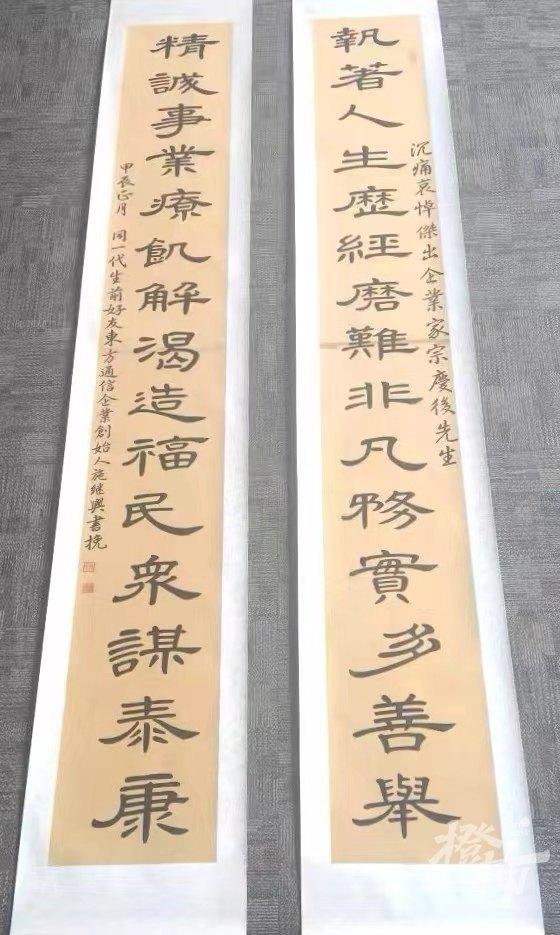 沉痛哀悼傑出企業家宗慶後先生
執著人生歷經磨難非凡務實多善舉
精誠事業療飢解渴造福民衆謀泰康
甲辰正月 同一代生前好友東方通信企業創始人施继興書挽